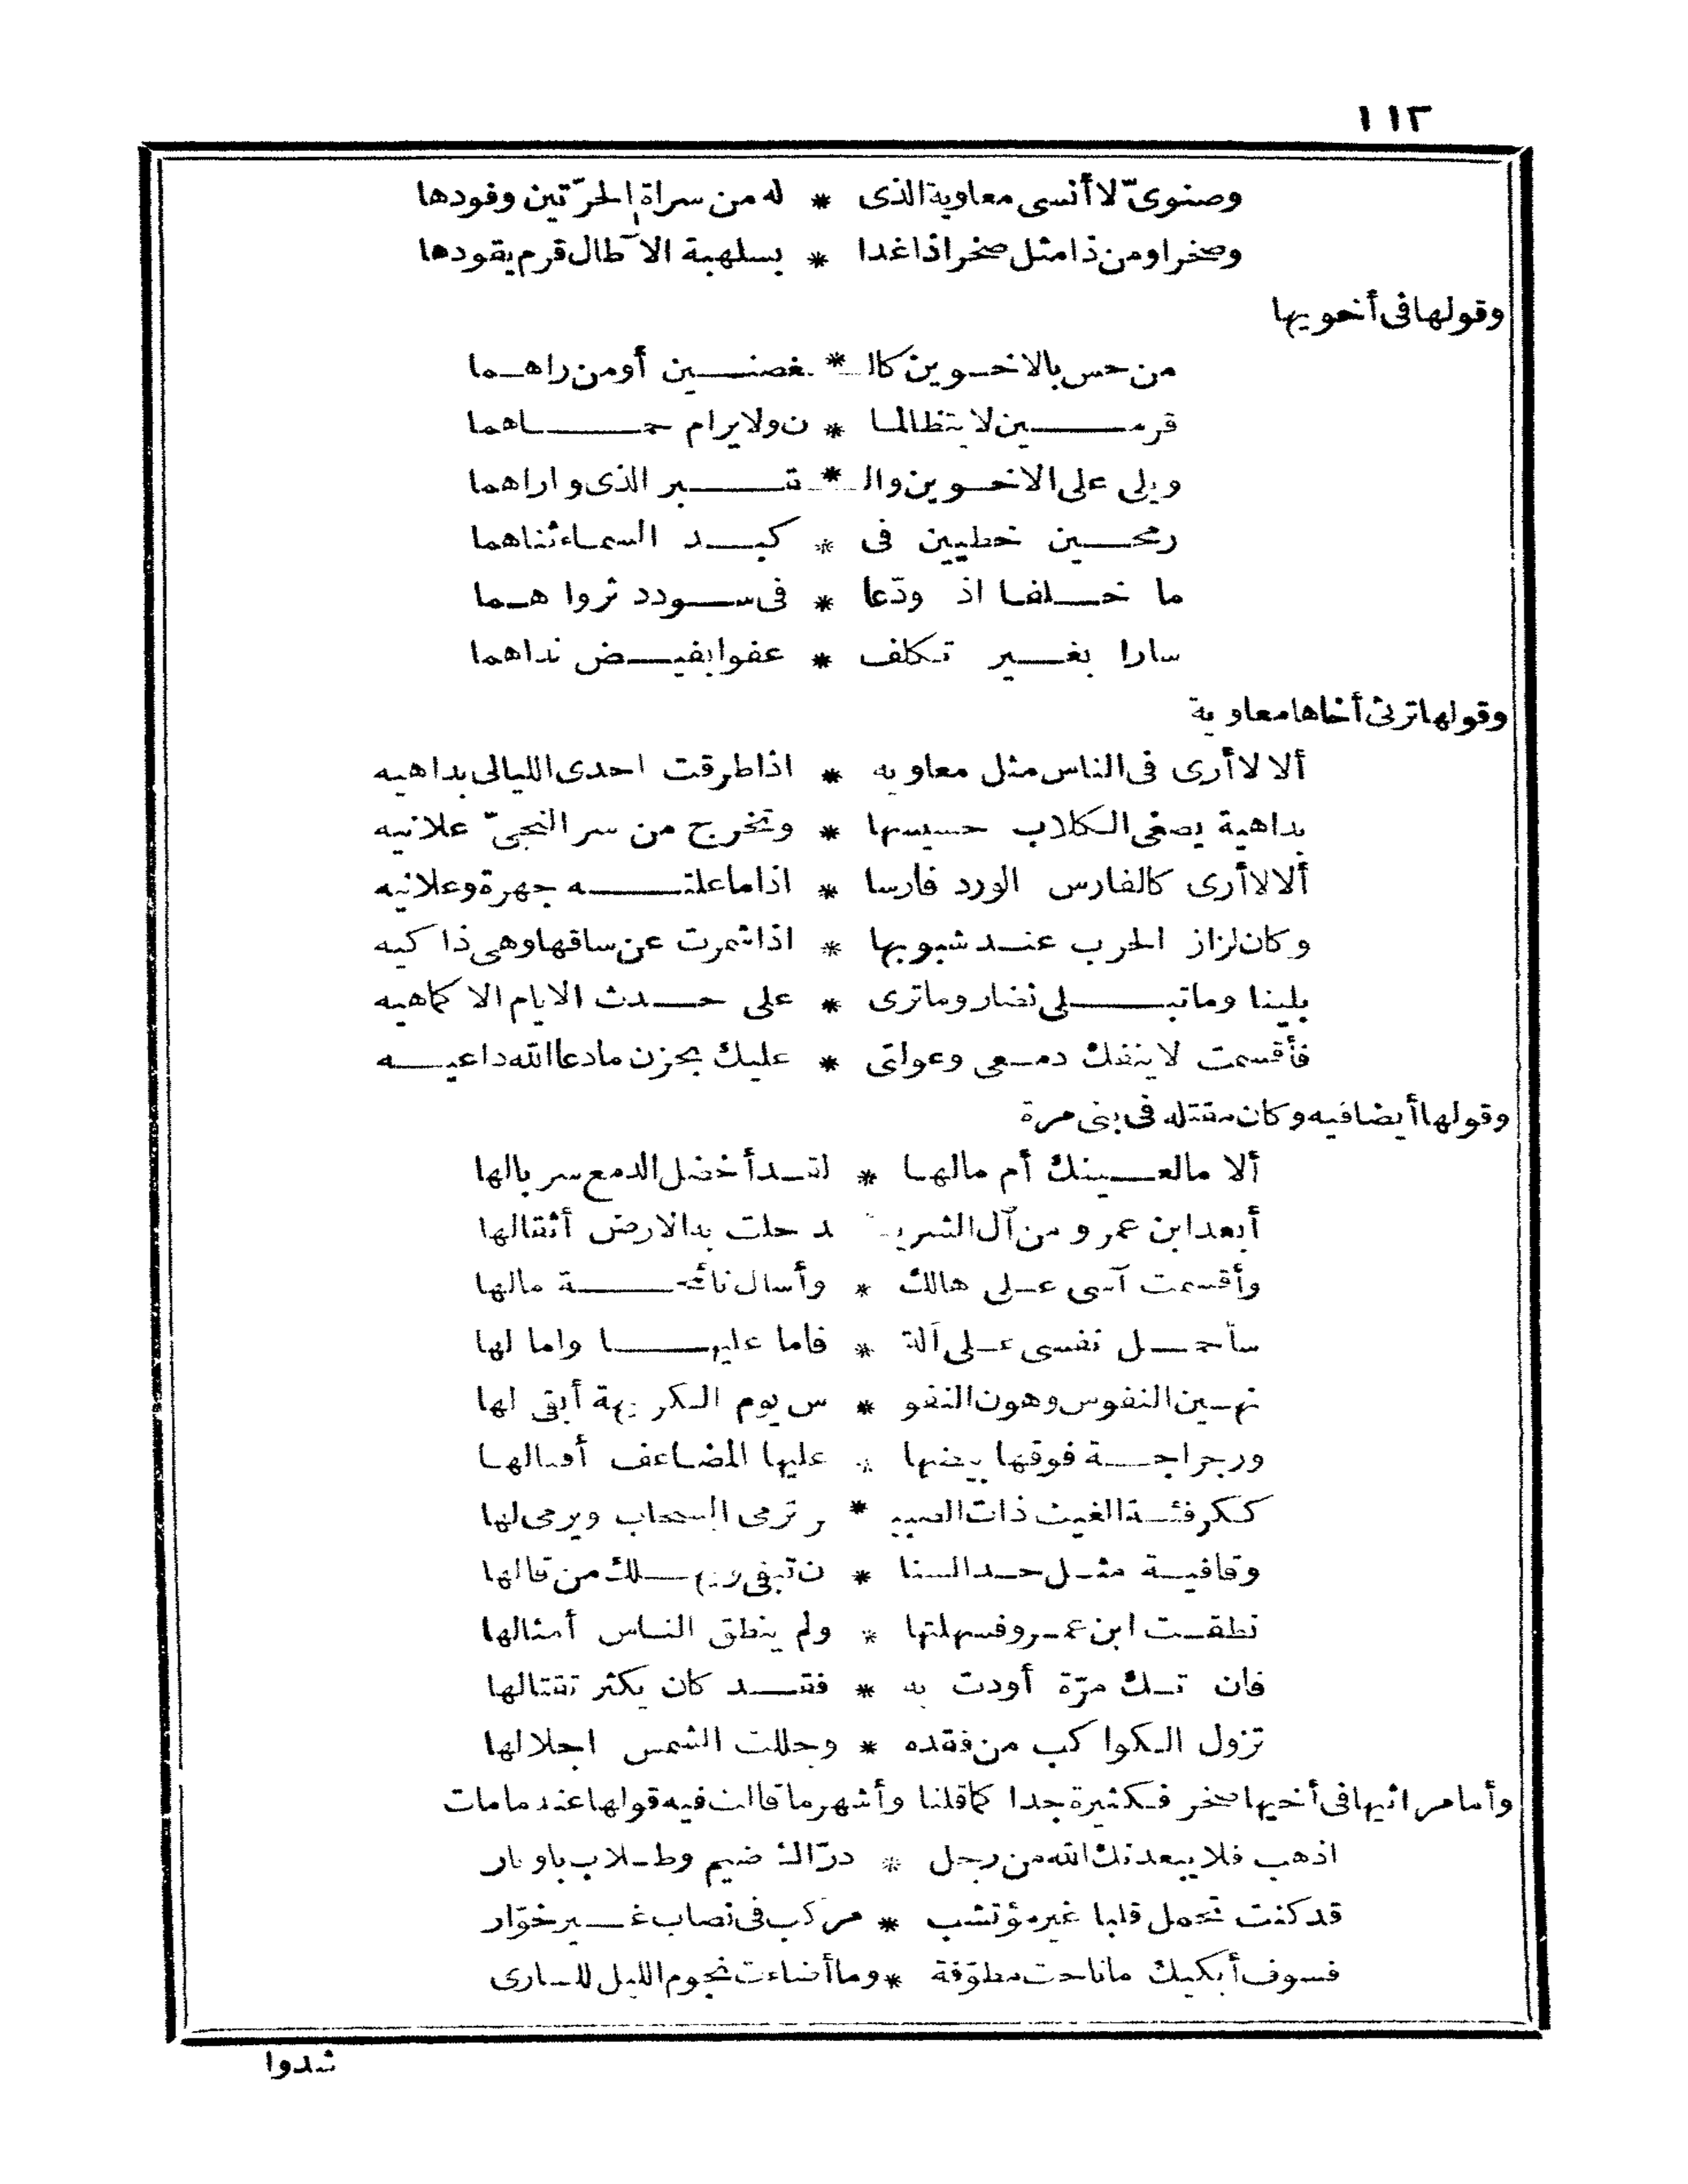 ١١٢
وصنوىّ لا أنسى معاوية الذى * له من سراة الحرّتين وفودها
وصخرا ومن ذا مثل صخر اذا غدا * بسلهبة الآطال قرم يقودها
وقولها فى أخويها
من حس بالاخوين كالـ * ـغصنين أو من راهما
قرمين لا يتظالما * ن ولا يرام حماهما
ويلى على الاخوين والـ * ـقبر الذى واراهما
رمحين خطيين فى * كبد السماء ثناهما
ما خلفا اذ ودّعا * فى سودد ثرواهما
سارا بغير تكلف * عفوا بفيض نداهما
وقولها ترثى أخاها معاوية
ألا لا أرى فى الناس مثل معاويه * اذا طرقت احدى الليالى بداهيه
بداهية يصغى الكلاب حسيسها * وتخرج من سر النجىّ علانيه
ألا لا أرى كالفارس الورد فارسا * اذا ما علته جهرة وعلانيه
وكان لزاز الحرب عند شبوبها * اذا شمرت عن ساقها وهى ذاكيه
بلينا وما تبلى تضار وما ترى * على حدث الايام الا كماهيه
فأقسمت لا ينفك دمعى وعولتى * عليك بحزن ما دعا الله داعيه
وقولها أيضا فيه وكان مقتله فى بنى مرة
ألا ما لعينك أم مالها * لقد أخضل الدمع سربالها
أبعد ابن عمرو من آل الشريـ د حلت به الارض أثقالها
وأقسمت آسى على هالك * وأسال نائحة مالها
سأحمل نفسى على آلة * فاما عليها واما لها
نهين النفوس وهون النفو * س يوم الكريهة أبقى لها
ورجراجة فوقها بيضها * عليها المضاعف أمثالها
ككرفئة الغيث ذات الصبيـ * ر ترمى السحاب ويرمى لها
وقافية مثل حد السنا * ن تبقى ويهلك من قالها
نطقت ابن عمرو فسهلتها * ولم ينطق الناس أمثالها
فان تك مرّة أودت به * فقد كان يكثر تقتالها
تزول الكواكب من فقده * وجللت الشمس اجلالها
وأما مراثيها فى أخيها صخر فكثيرة جدا كما قلنا وأشهر ما قالت فيه قولها عند ما مات
اذهب فلا يبعدنك الله من رجل * درّاك ضيم وطلاب باوتار
قد كنت تحمل قلبا غير مؤتشب * مركب فى نصاب غير خوّار
فسوف أبكيك ما ناحت مطوّقة * وما أضاءت نجوم الليل للسارى
شدوا